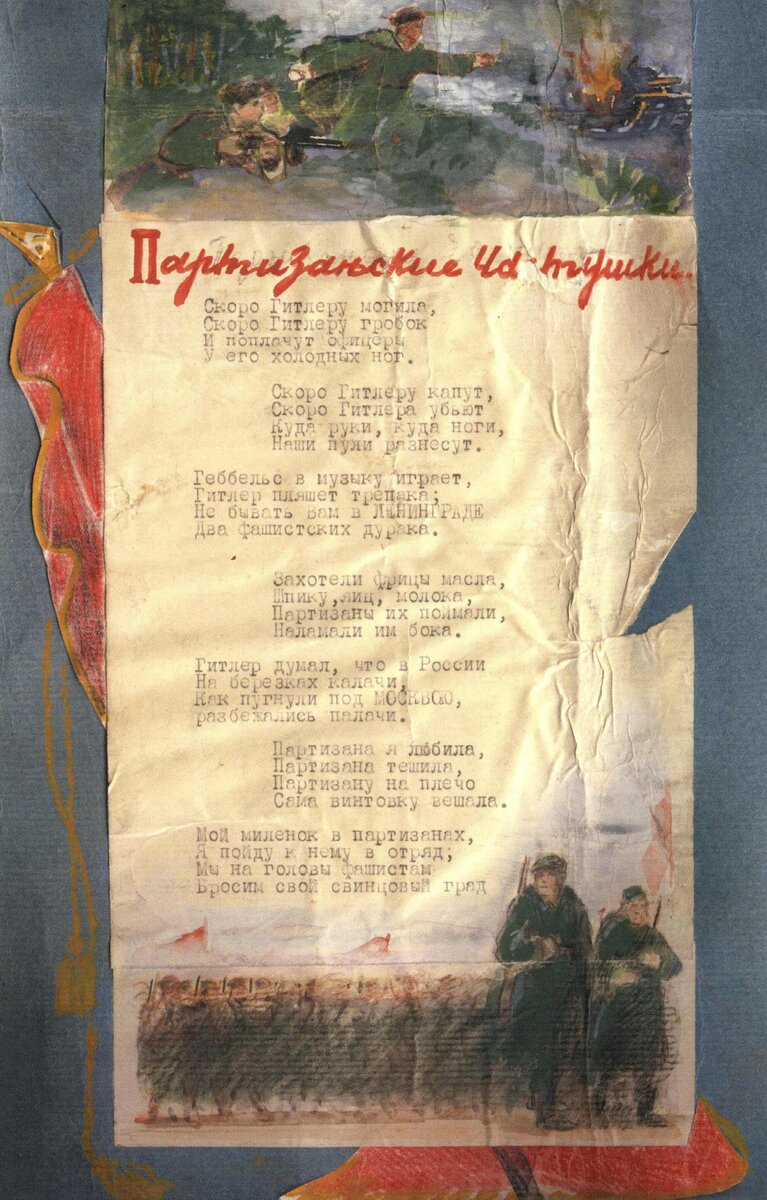 Партизанские Ча-тушки.
Скоро Гитлеру могила,
Скоро Гитлеру гробок
И поплачут офицеры
У его холодных ног.
Скоро Гитлеру капут,
Скоро Гитлера убьют
Куда руки, куда ноги,
Наши пули разнесут.
Геббельс в музыку играет,
Гитлер пляшет трепака;
Не бывать вам в ЛЕНИНГРАДЕ
Два фашистских дурака.
Захотели фрицы масла,
Шпику,яиц, молока,
Партизаны их поймали,
Наламали им бока.
Гитлер думал, что в России
На березках калачи,
Как пугнули под МОСКВОЮ,
разбежались палачи.
Партизана я любила,
Партизана тешила,
Партизану на плечо
Сама винтовку вешала.
Мой миленок в партизанах,
Я пойду к нему в отряд;
Мы на головы фашистам
Бросим свой свинцовый град